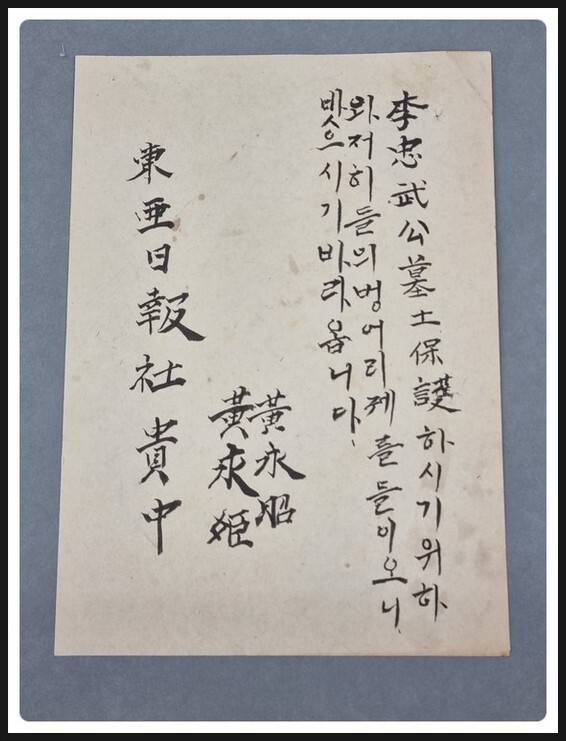 李忠武公墓土保護하시기위하
와저히들의벙어리제를들이오니
밧으시기바라옵니다.
黃永昭
黃永姬
東亜日報社貴中